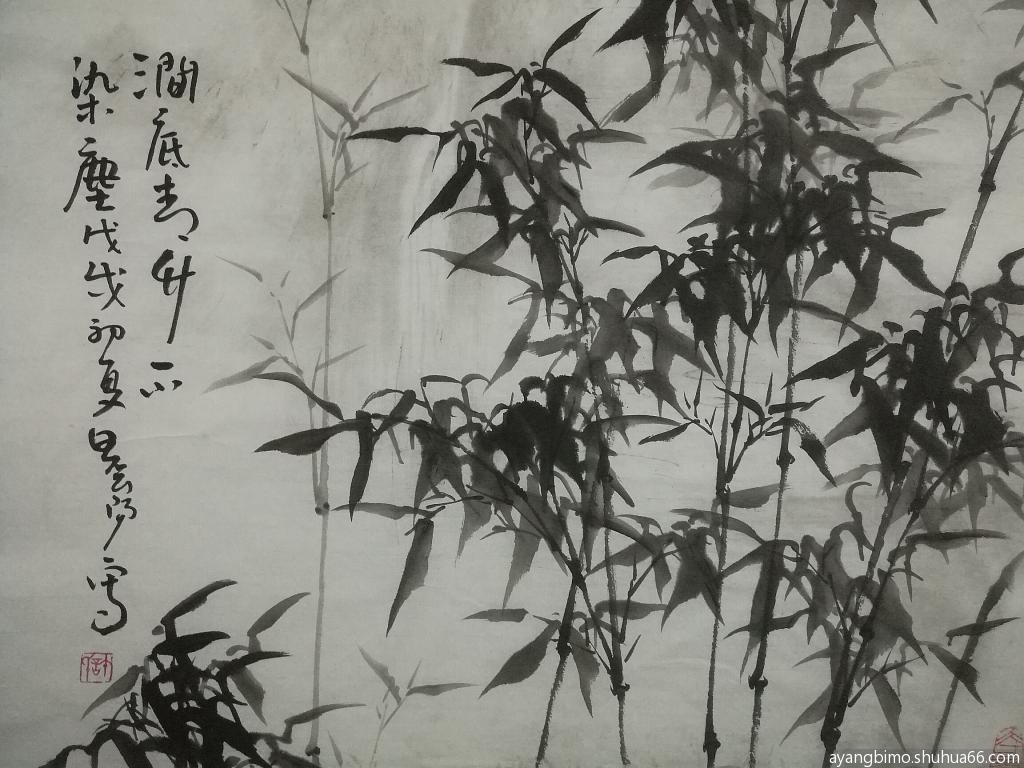 澗底青々竹不
染塵戊戌初夏 寫
ayangbimo.shuhua66.com